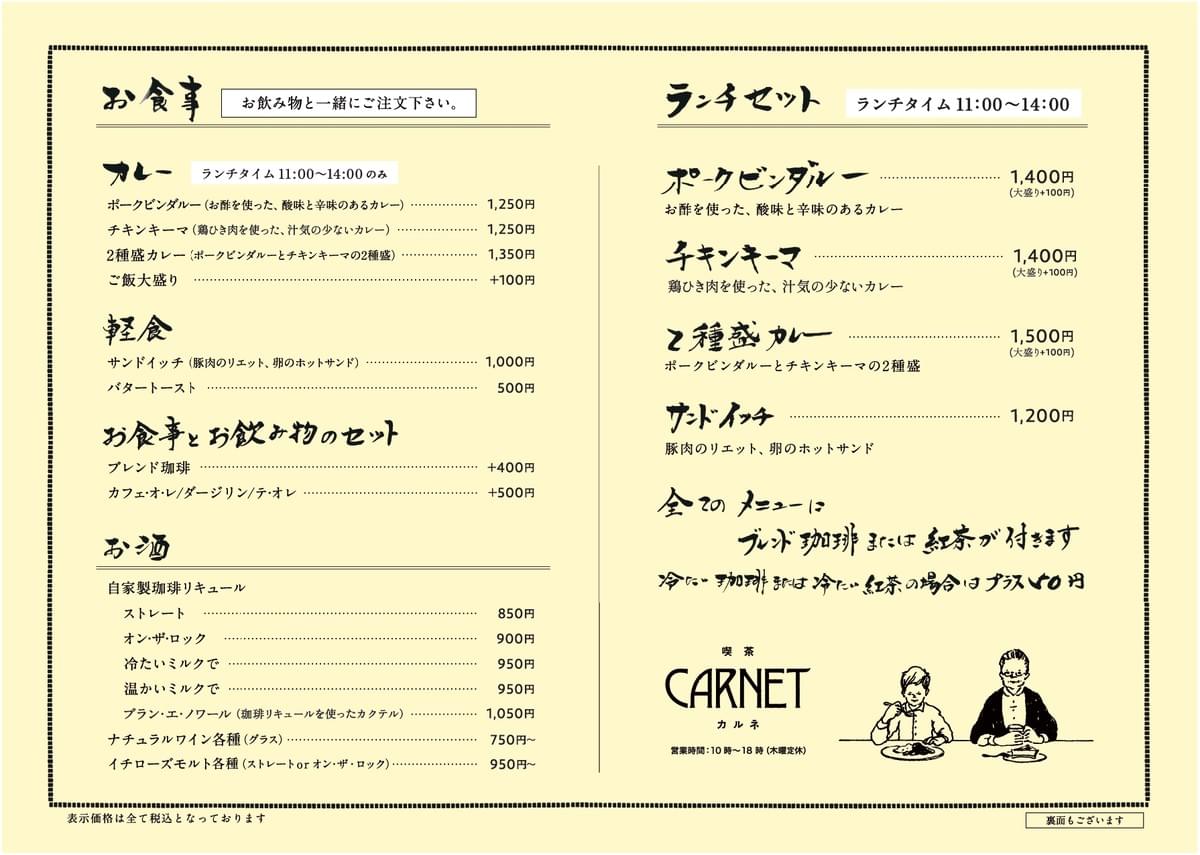 お食事
お飲み物と一緒にご注文下さい。
カレー ランチタイム 11:00〜14:00 のみ
ポークビンダルー（お酢を使った、酸味と辛味のあるカレー） 1,250円
チキンキーマ（鶏ひき肉を使った、汁気の少ないカレー） 1,250円
2種盛カレー（ポークビンダルーとチキンキーマの2種盛） 1,350円
ご飯大盛り +100円
軽食
サンドイッチ（豚肉のリエット、卵のホットサンド） 1,000円
バタートースト 500円
お食事とお飲み物のセット
ブレンド珈琲 +400円
カフェ・オ・レ/ダージリン/テ・オレ +500円
お酒
自家製珈琲リキュール
ストレート 850円
オン・ザ・ロック 900円
冷たいミルクで 950円
温かいミルクで 950円
ブラン・エ・ノワール（珈琲リキュールを使ったカクテル） 1,050円
ナチュラルワイン各種（グラス） 750円〜
イチローズモルト各種（ストレート or オン・ザ・ロック） 950円〜
表示価格は全て税込となっております
ランチセット
ランチタイム 11:00〜14:00
ポークビンダルー 1,400円
(大盛り+100円)
お酢を使った、酸味と辛味のあるカレー
チキンキーマ 1,400円
(大盛り+100円)
鶏ひき肉を使った、汁気の少ないカレー
2種盛カレー 1,500円
(大盛り+100円)
ポークビンダルーとチキンキーマの2種盛
サンドイッチ 1,200円
豚肉のリエット、卵のホットサンド
全てのメニューに
ブレンド珈琲または紅茶が付きます
冷たい珈琲または冷たい紅茶の場合はプラス50円
喫茶
CARNET
カルネ
営業時間：10時〜18時（木曜定休）
裏面もございます